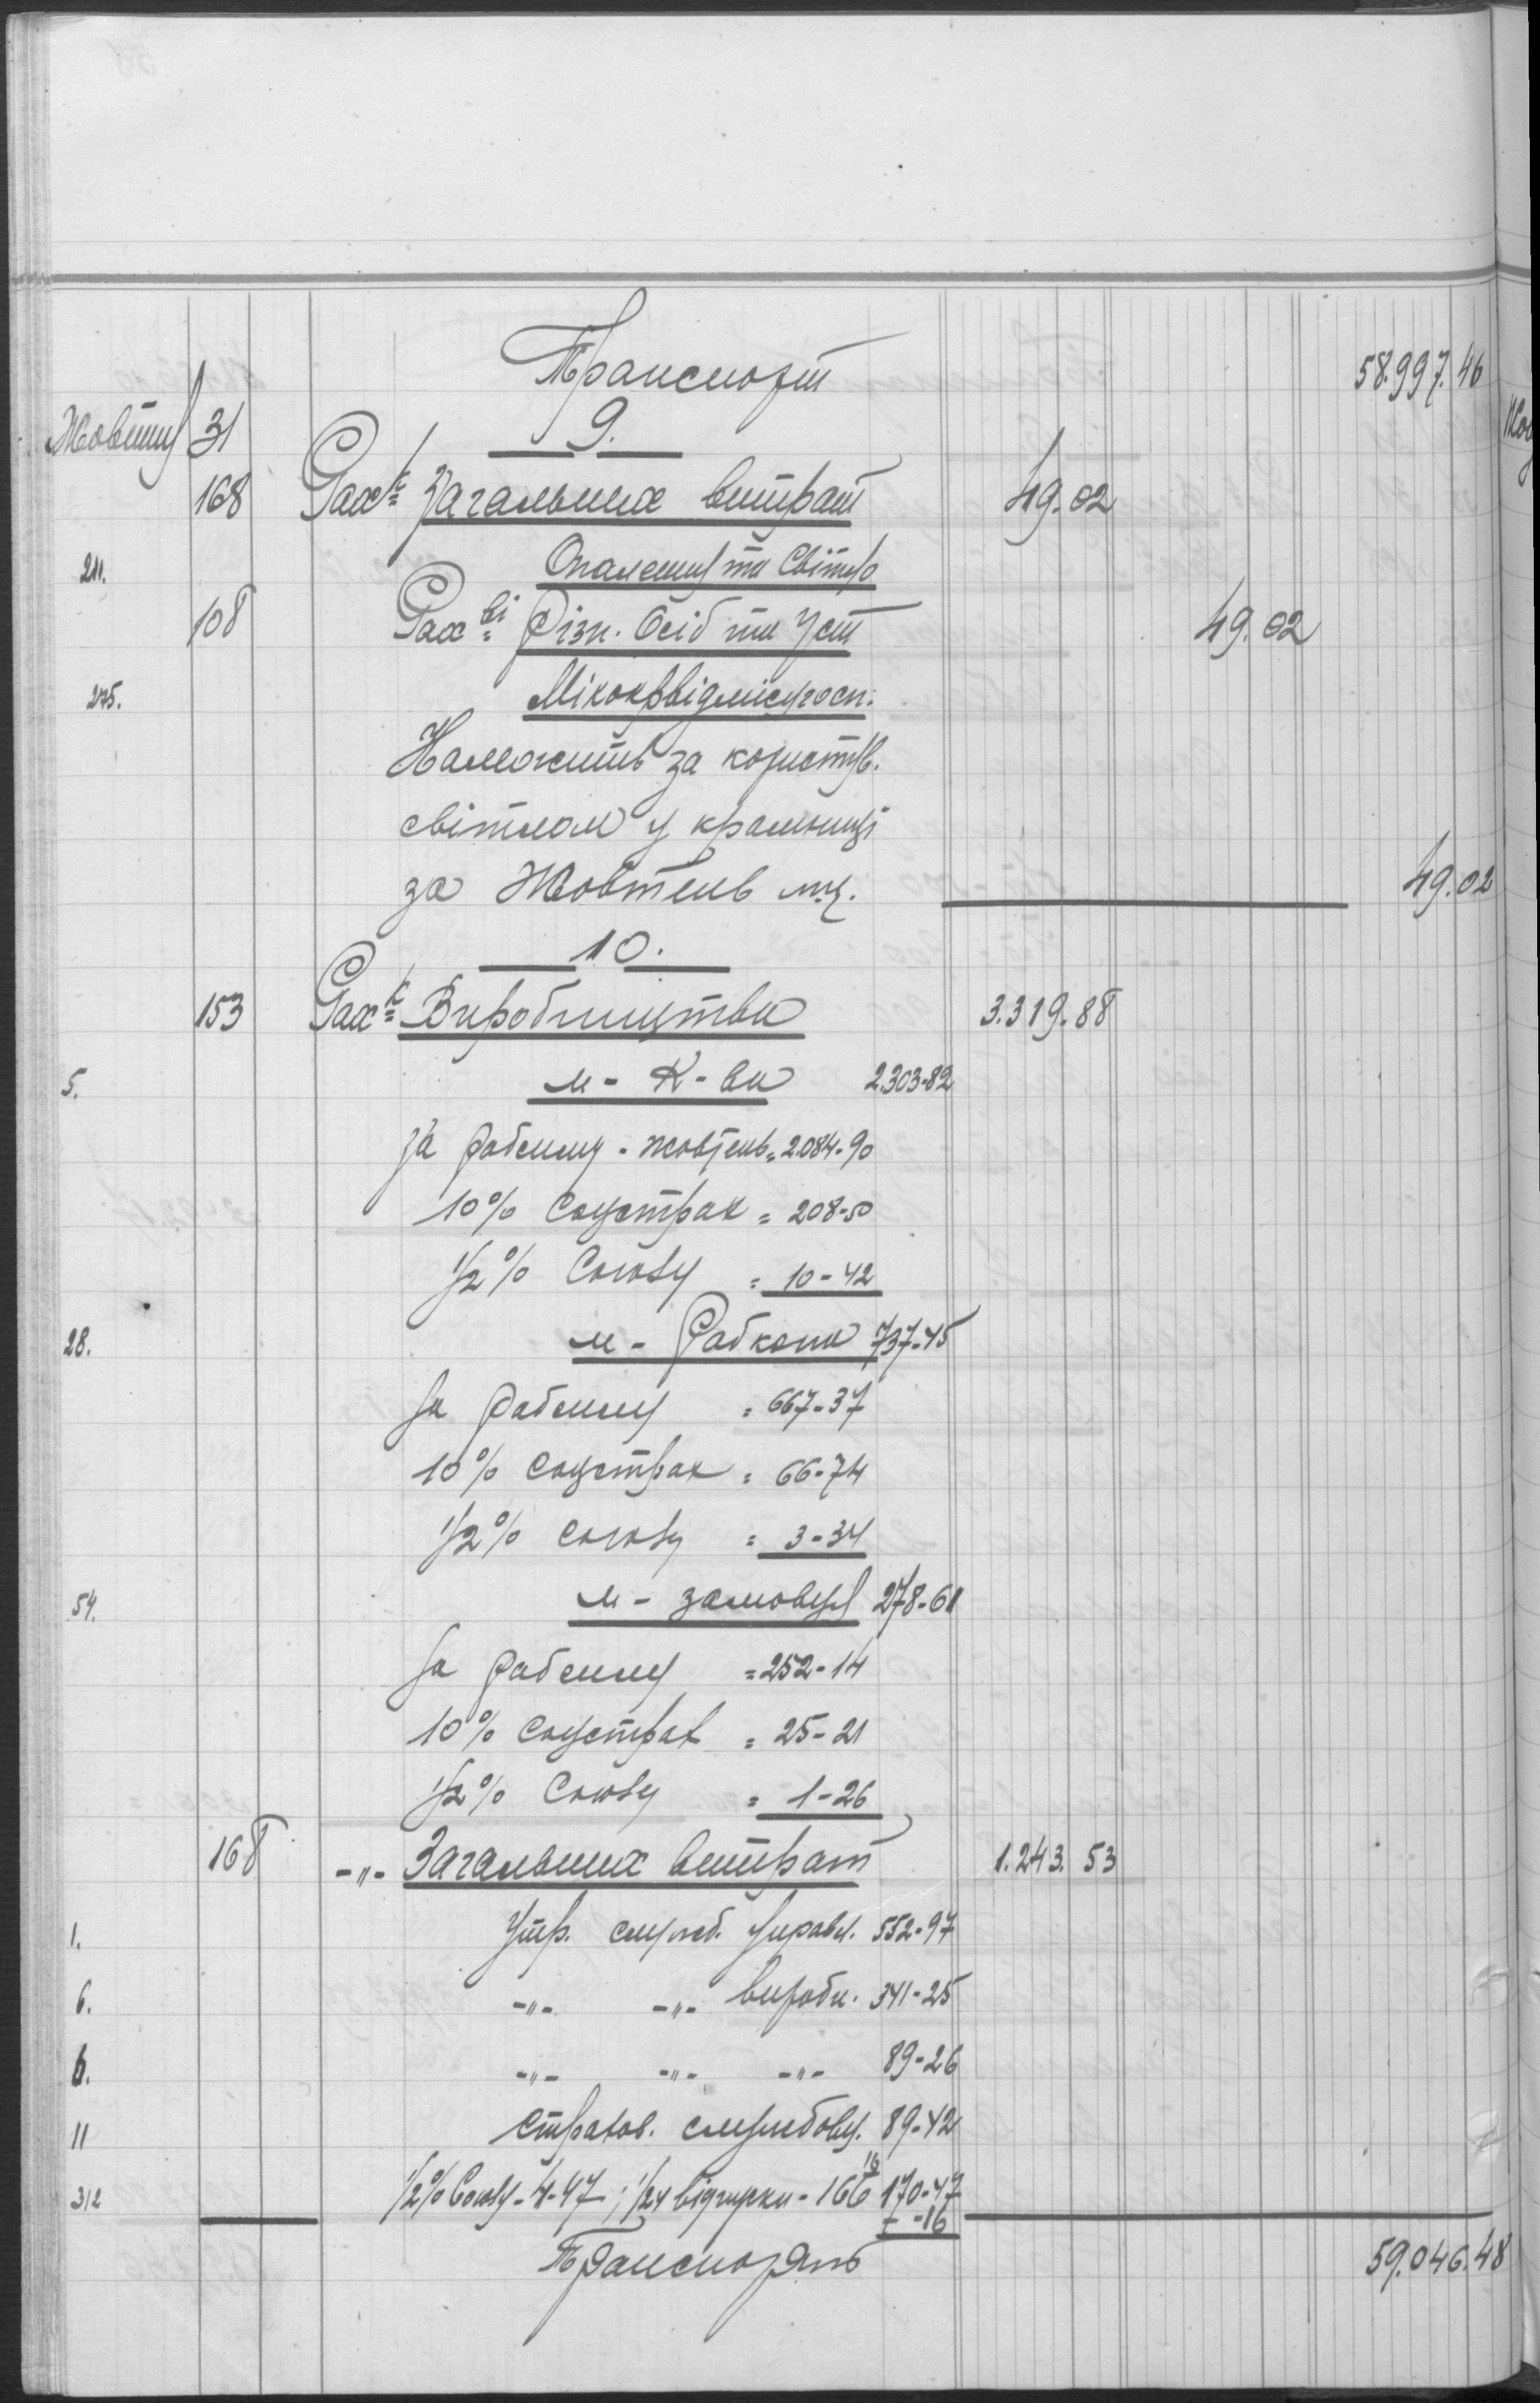 Транспорт 58.997.46
Жовтня 31 9.
168 Рах-к Загальних витрат 49.02
211. Опалення та Світло
108 Рах-ві Різн. Осіб та Уст 49.02
275.
Належить за користув.
світлом у крамниці
за Жовтень м-ц. 49.02
10.
153 Рах-к Виробництва 3.319.88
5. м-К-ва 2.303-82
за робсилу - жовтень = 2.084-90
10% Соцстрах = 208-50
1/2% Союзу = 10-42
28. м-Робкопа 737-45
за робсилу = 667-37
10% соцстрах = 66-74
1/2% союзу = 3-34
54. м-замовця 278-61
за робсилу = 252-14
10% соцстрах = 25-21
1/2% Союзу = 1-26
168 -"- Загальних витрат 1.243.53
1. Утр. служб. управл. 552-97
6. -"- -"- виробн. 341-25
6. -"- -"- -"- 89-26
11 страхов. службовц. 89-42
312 1/2% Союзу - 4-47; 1/24 відпуски - 166 16 170-47
-16
Транспорт 59.046.48